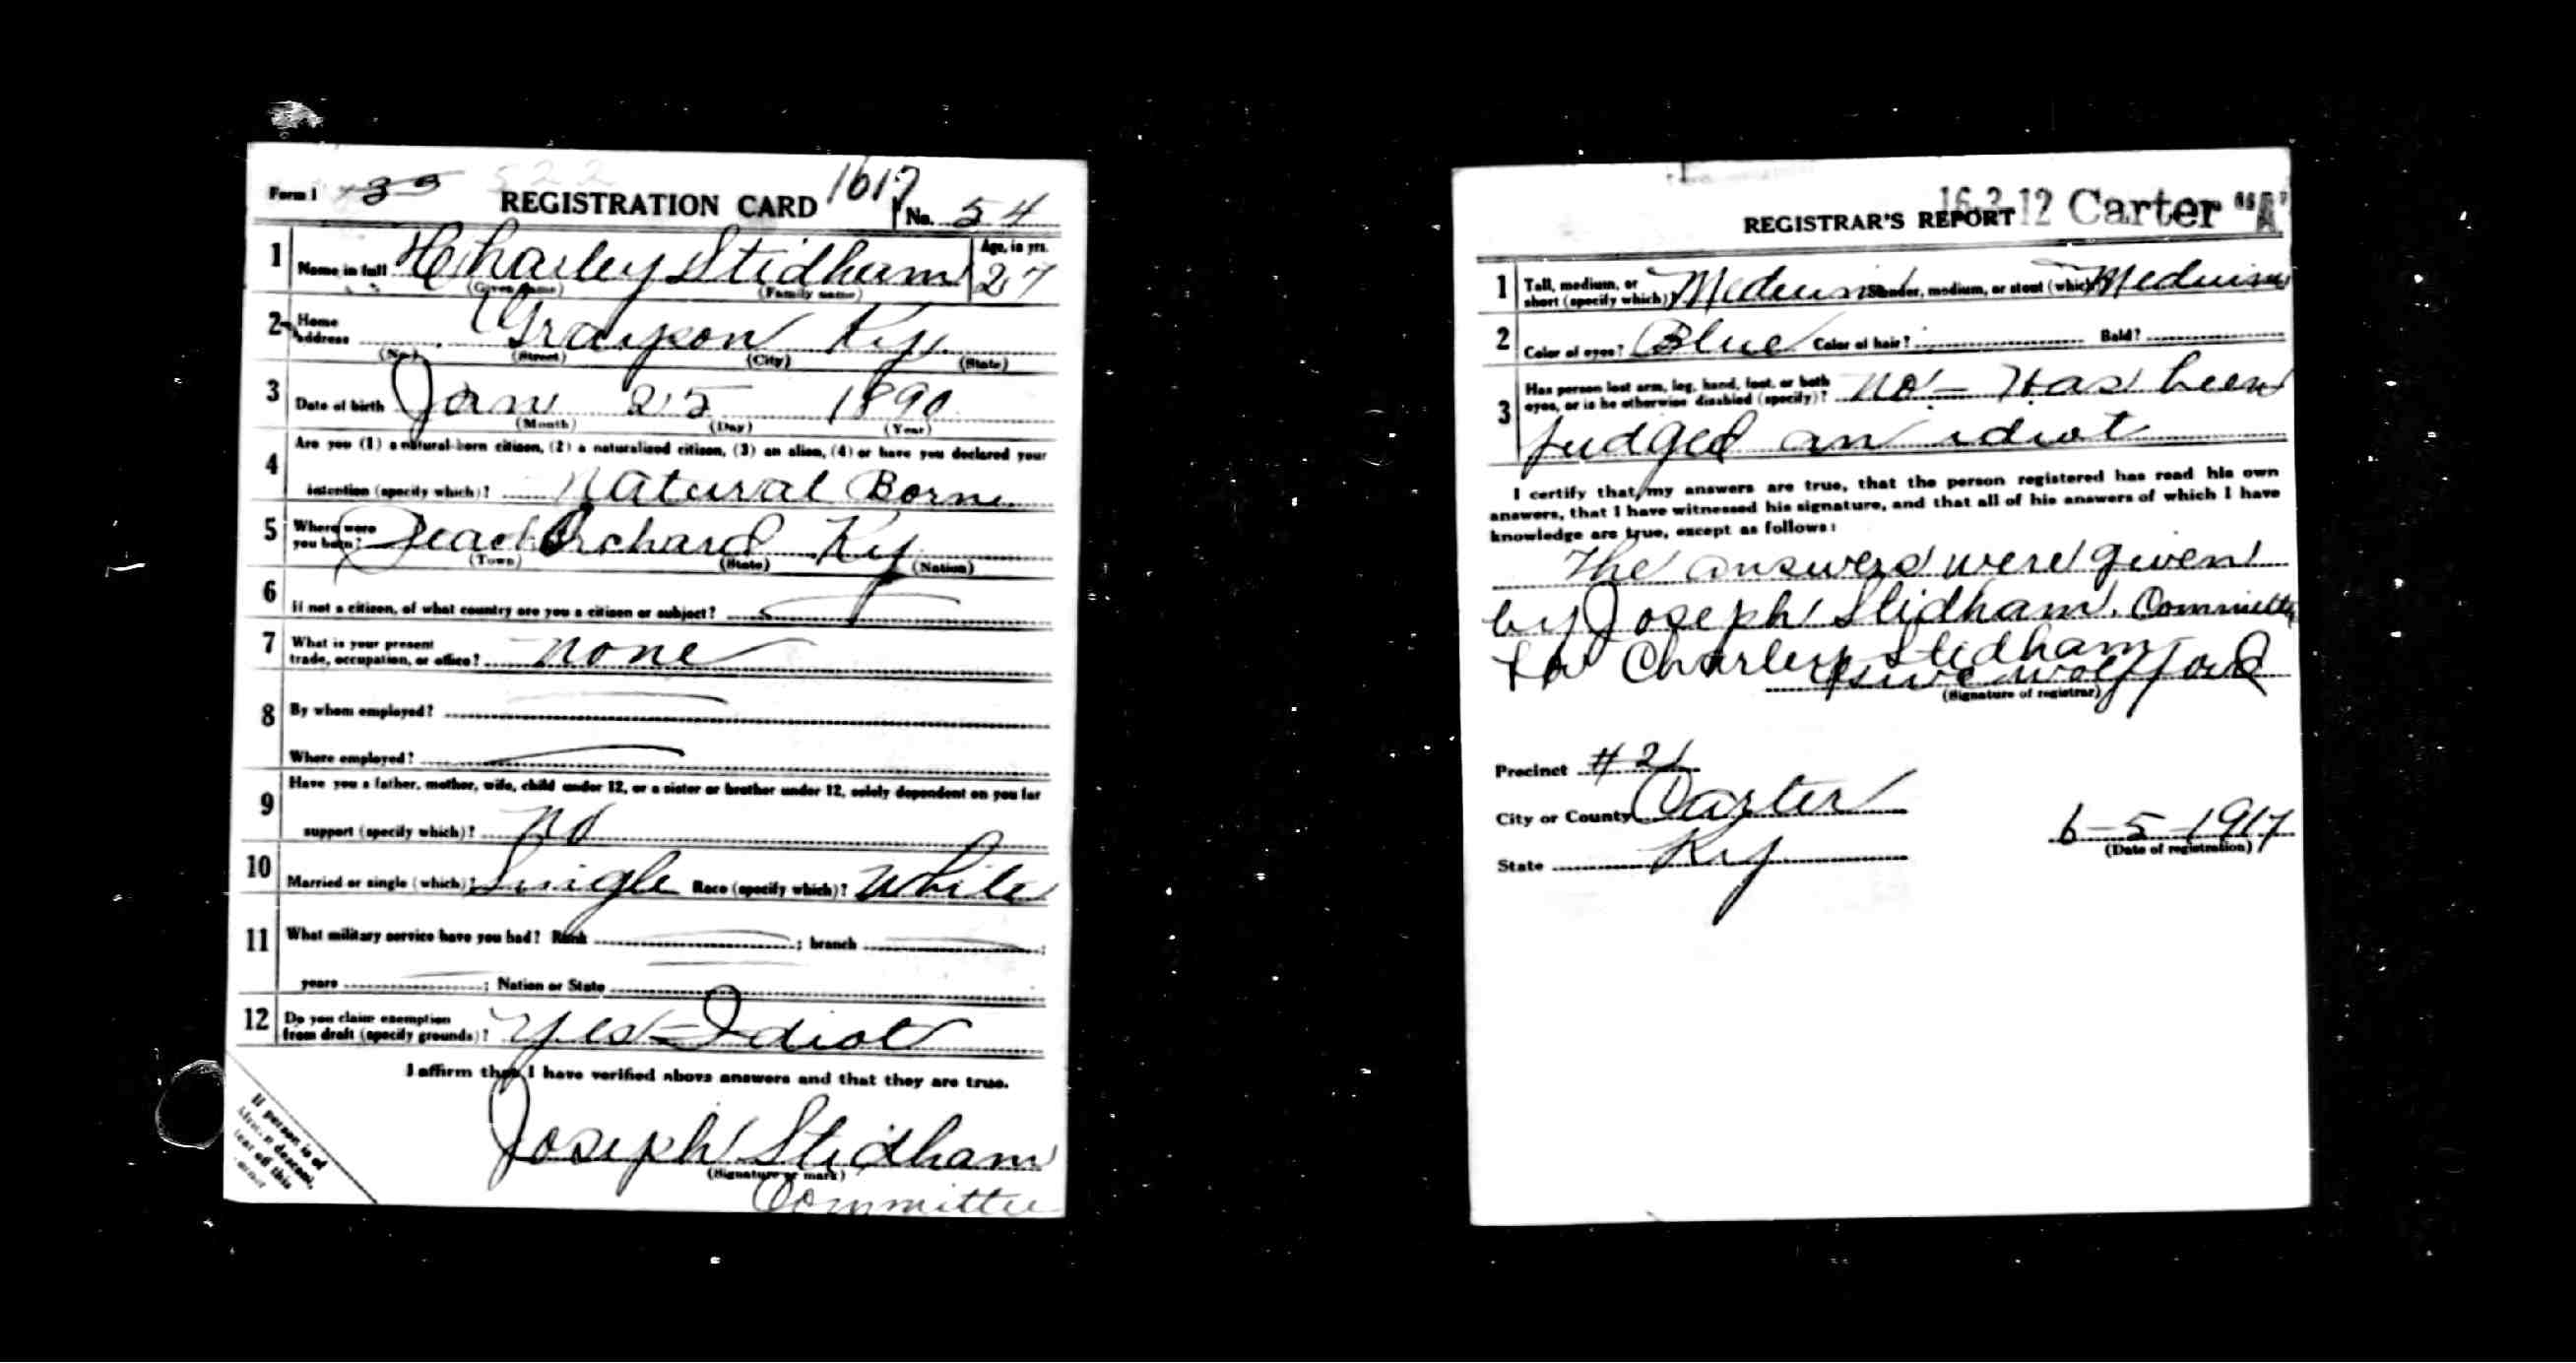 Form 1 35 522 REGISTRATION CARD 1617 No. 54
1 Name in full Charley Stidham Age, in yrs. 27
(Given name) (Family name)
2 Home address Grayson Ky.
(No.) (Street) (City) (State)
3 Date of birth Jan 25 1890
(Month) (Day) (Year)
4 Are you (1) a natural-born citizen, (2) a naturalized citizen, (3) an alien, (4) or have you declared your
intention (specify which)? Natural Born
5 Where were you born? Peach Orchard Ky
(Town) (State) (Nation)
6 If not a citizen, of what country are you a citizen or subject?
7 What is your present trade, occupation, or office? None
8 By whom employed?
Where employed?
9 Have you a father, mother, wife, child under 12, or a sister or brother under 12, solely dependent on you for
support (specify which)? No
10 Married or single (which)? Single Race (specify which)? White
11 What military service have you had? Rank ; branch ;
years ; Nation or State
12 Do you claim exemption from draft (specify grounds)? Yes - Idiot
I affirm that I have verified above answers and that they are true.
Joseph Stidham
(Signature or mark)
Committee
If person is of
African descent,
tear off this
corner
16-3-12 Carter "A"
REGISTRAR'S REPORT
1 Tall, medium, or short (specify which)? Medium Slender, medium, or stout (which)? Meduim
2 Color of eyes? Blue Color of hair? Bald?
3 Has person lost arm, leg, hand, foot, or both eyes, or is he otherwise disabled (specify)? No - Has been
judged an idiot
I certify that my answers are true, that the person registered has read his own
answers, that I have witnessed his signature, and that all of his answers of which I have
knowledge are true, except as follows:
The answers were given
by Joseph Stidham. Committee
for Charley Stidham
Wolfford
(Signature of registrar)
Precinct #21
City or County Carter
State Ky
6-5-1917
(Date of registration)